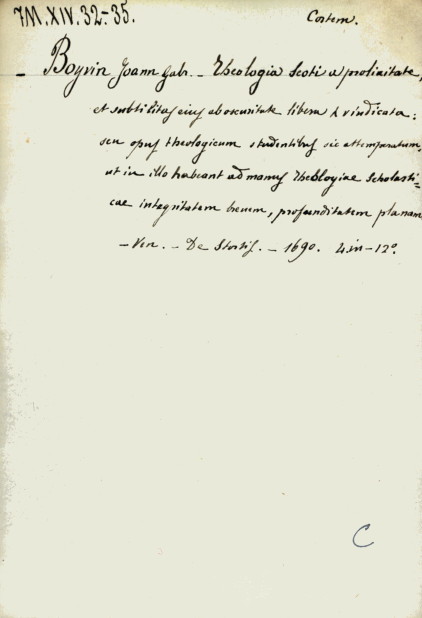 7M.XIV.32-35.
Costem.
- Boyvin Joann Gabr. - Theologia Scoti a prolixitate,
et subtilitas eius ab obscuritate libera & vindicata:
seu opus theologicum studentibus sic attemperatum,
ut in illo habeant ad manus Theologiae Scholasti-
cae integritatem brevem, profunditatem planam
- Ven. - De Stortis. - 1690. 4 in-12º.
C